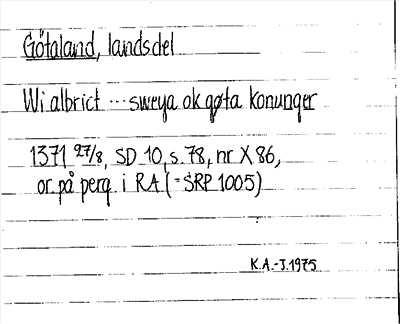 Götaland, landsdel
Wi albrict ... sweya ok gøta konunger
1371 27/8, SD 10, s. 78, nr X 86,
or på perg. i RA (= SRP 1005)
K.A.-J. 1975